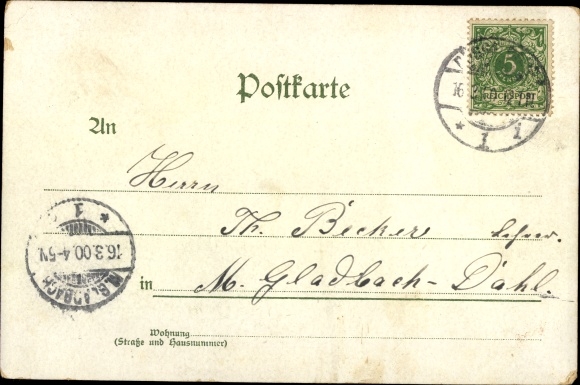 Postkarte
5
REICHSPOST
16
1 i
An
Herrn
Th. Beckers Lehrer.
in M. Gladbach-Dahl.
1
16.3.00.4-5N.
M.GLADBACH
Wohnung
(Straße und Hausnummer)